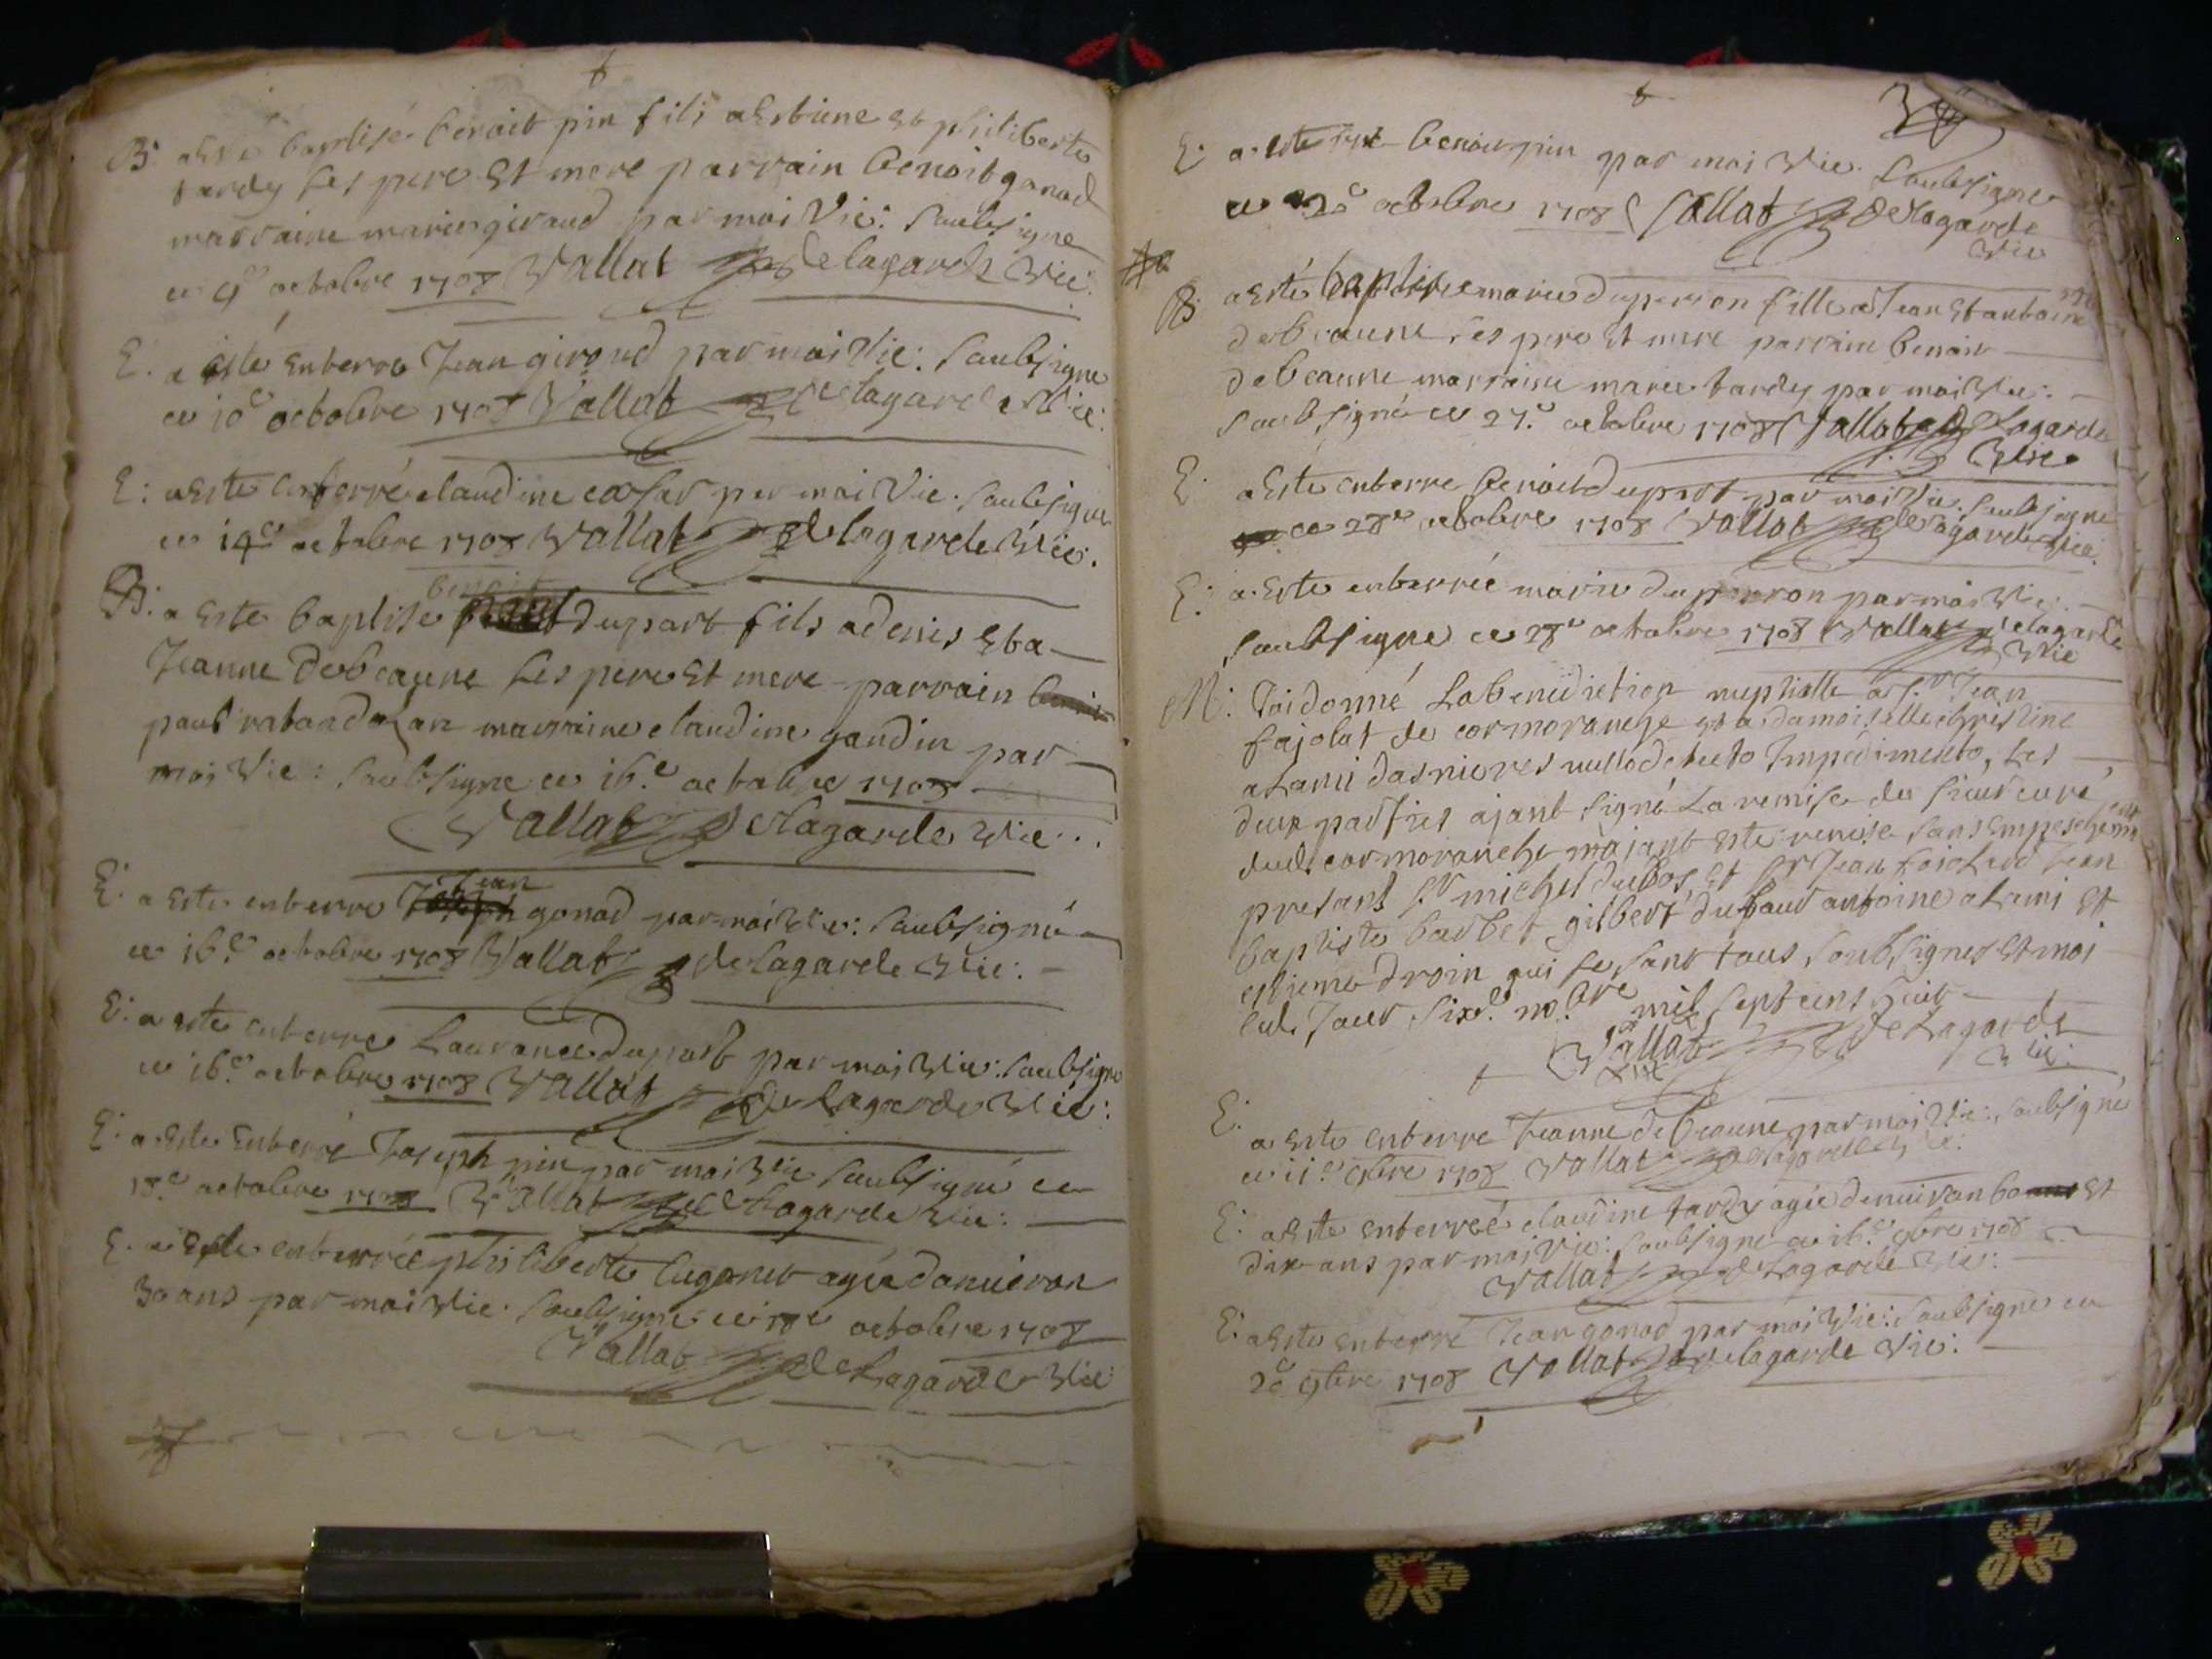 B: a esté baptisé benoit pin fils a estiene et philiberte
tardy ses pere et mere parrain benoit gonod
marraine marie giraud par moi Vic: soubsigne
ce 9e octobre 1708 Vallat delagarde Vic:
E: a esté enterre Jean giroud par moi Vic: soubsigne
ce 10e octobre 1708 Vallat delagarde Vic:
E: a este enterré claudine par moi Vic: soubsigne
ce 14e octobre 1708 Vallat delagarde Vic:
benoit
B: a este baptise dupart fils a denis et a
Jeanne debeaune ses pere et mere parrain
paul marraine claudine gandin par
moi Vic: soubsigne ce 16.e octobre 1708
Vallat delagarde Vic:
Jean
E: a este enterre Joseph gonod par moi Vic: soubsigné
ce 16.e octobre 1708 Vallat delagarde Vic:
E: a este enterre Laurance dupart par moi Vic: soubsigne
ce 16.e octobre 1708 Vallat delagarde Vic:
E: a este enterré Joseph pin par moi Vic soubsigné ce
18.e octobre 1708 Vallat delagarde Vic:
E. a este enterrée philiberte agée danviron
30 ans par moi Vic. soubsigne ce 18e octobre 1708
Vallat delagarde Vic:
E. a este benoit pin par moi Vic. soubsigne
ce octobre 1708 Vallat delagarde
Vic
B: a esté baptisee marie duperron fille a Jean et antoine
debeaune ses pere et mere parrain benoit
debeaune marraine marie tardy par moi Vic:
soubsigné ce 27.e octobre 1708 Vallat delagarde
Vic
E. a este enterre benoit dupart par moi Vic. soubsigne
ce 28e octobre 1708 Vallat delagarde Vic:
E: a este enterrée marie duperron par moi Vic.
soubsigne ce 28e octobre 1708 Vallat delagarde
Vic
M: J'ai donné la benediction nuptialle a sr. Jean
fajolat de cormoranche et a damoiselle christine
alami dasnieres nullo detecto Impedimento, les
deux parties ajant signé La remise du sieur curé
dud. cormoranche m'ajant este remise sans empeschement
presants sr michel dubos, et sr Jean Jean
baptiste barbet gilbert dufaur antoine alami et
estiene droin qui se sont tous soubsignes et moi
ced. Jour sixe. 9bre mil sept cens huit
Vallat delagarde
Vic:
E: a este enterré Jeanne debeaune par moi Vic: soubsigné
ce 11.e 9bre 1708 Vallat delagarde Vic:
E: a este enterrée claudine tardy agée denviron et
dix ans par moi Vic: soubsigne ce 16.e 9bre 1708
Vallat delagarde Vic:
E: a este enterré Jean gonod par moi Vic: soubsigne ce
20e 9bre 1708 Vallat delagarde Vic: